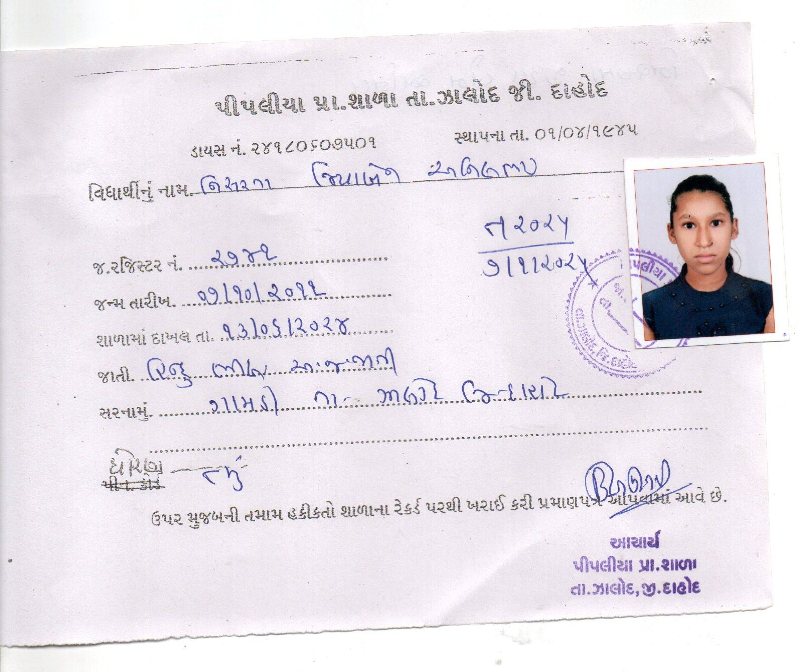 પીપલીયા પ્રા.શાળા તા.ઝાલોદ જી. દાહોદ
ડાયસ નં. ૨૪૧૮૦૬૦૭૫૦૧
સ્થાપના તા. ૦૧/૦૪/૧૯૪૫
વિદ્યાર્થીનું નામ.
તા ૨૦૨૫
૭/૧/૨૦૨૫
જ.રજિસ્ટર નં. ૨૭૪૧
જન્મ તારીખ. ૨૭/૧૦/૨૦૧૧
શાળામાં દાખલ તા. ૧૩/૦૬/૨૦૨૪
જાતી. હિન્દુ ભીલ અ.જ.જાતી
સરનામું. ગામડી તા- ઝાલોદ જિ-દાહોદ
ધોરણ
પીન. કોડ
ઉપર મુજબની તમામ હકીકતો શાળાના રેકર્ડ પરથી ખરાઈ કરી પ્રમાણપત્ર આપવામાં આવે છે.
આચાર્ય
પીપલીયા પ્રા.શાળા
તા.ઝાલોદ,જી.દાહોદ
પીપલીયા
તા.ઝાલોદ, જિ. દાહોદ